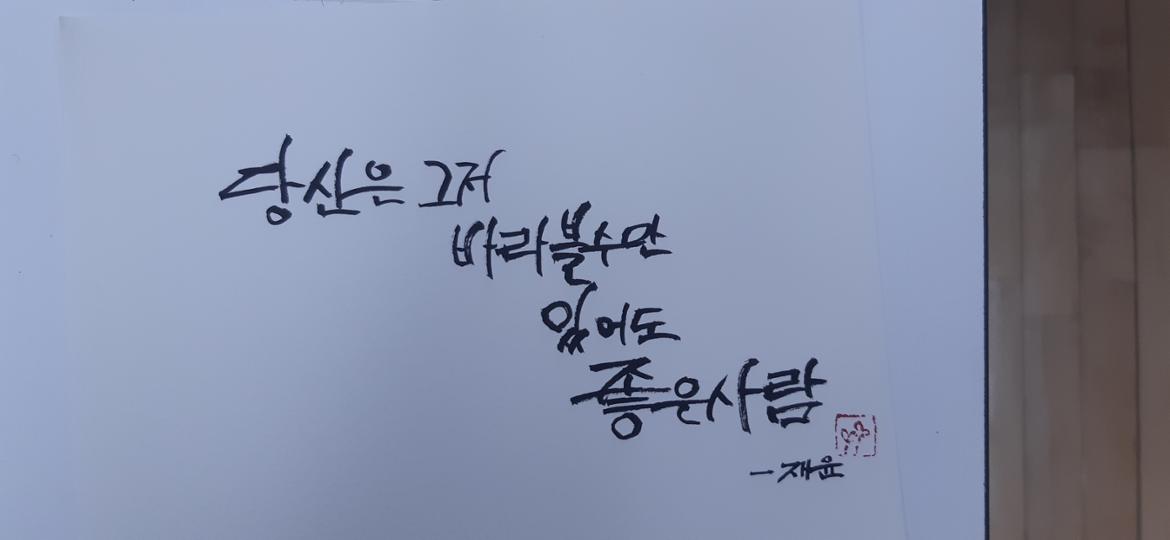 당신은 그저
바라볼수만
있어도
좋은사람
- 재윤